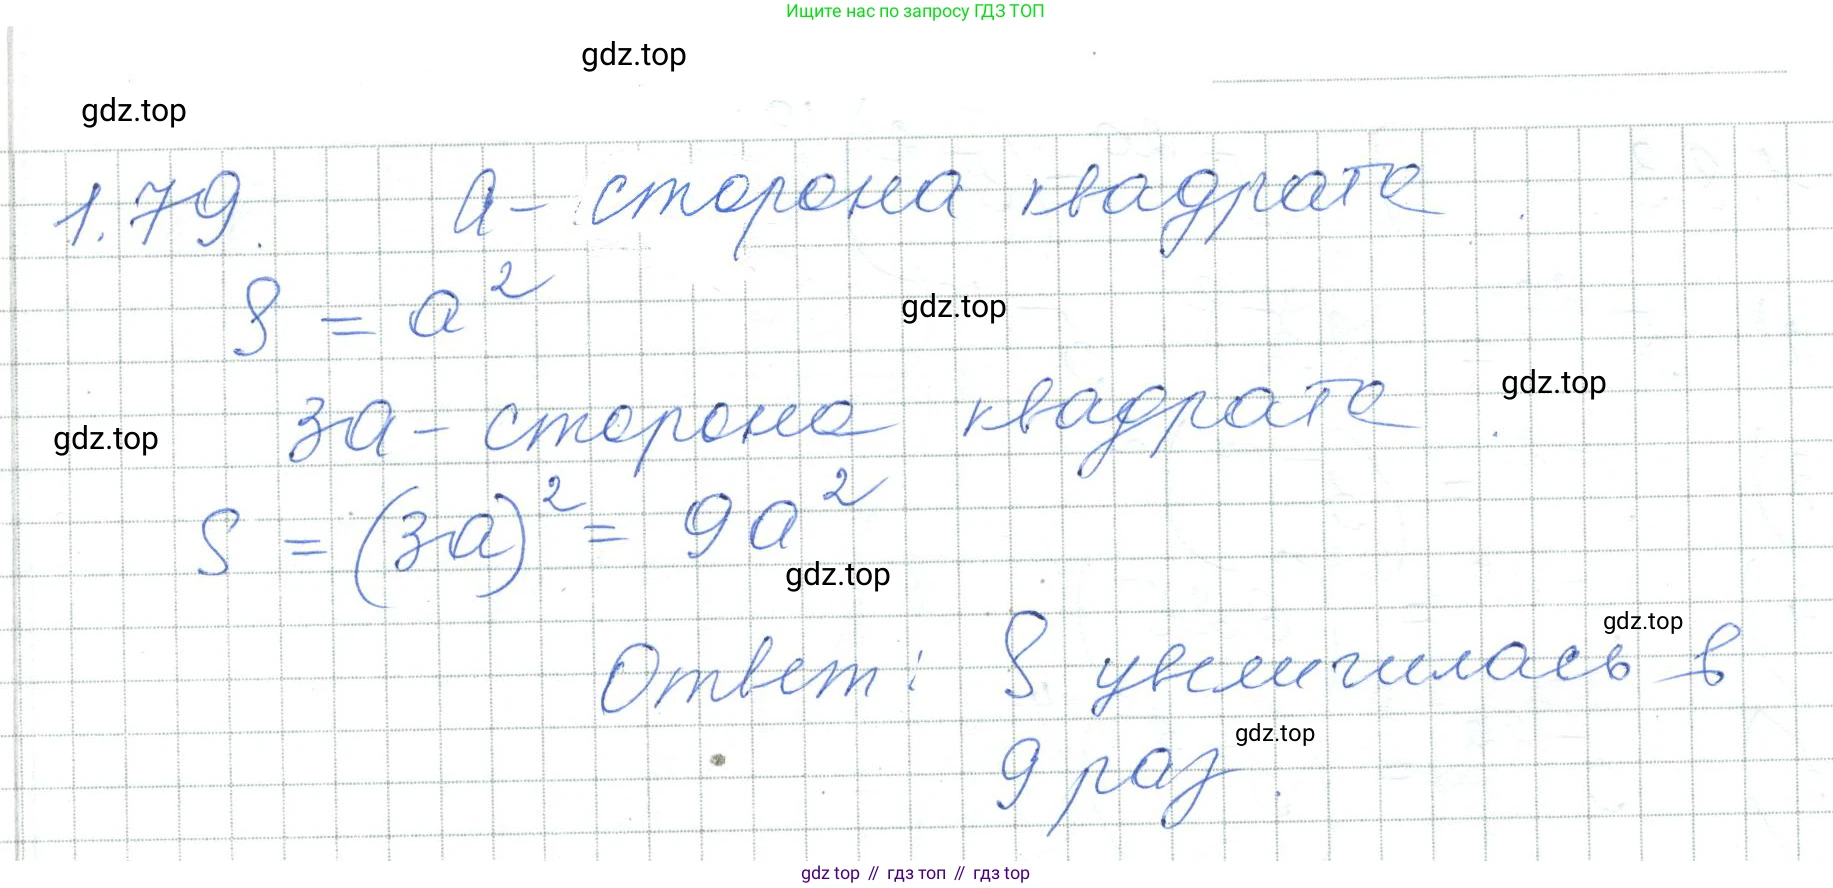 Ищите нас по запросу ГДЗ ТОП
gdz.top
gdz.top
1.79. a - сторона квадрата.
S = a²
gdz.top
gdz.top
3a - сторона квадрата.
gdz.top
S = (3a)² = 9a²
gdz.top
gdz.top
Ответ: S увеличилась в
9 раз.
gdz.top
gdz top // гдз топ // гдз top